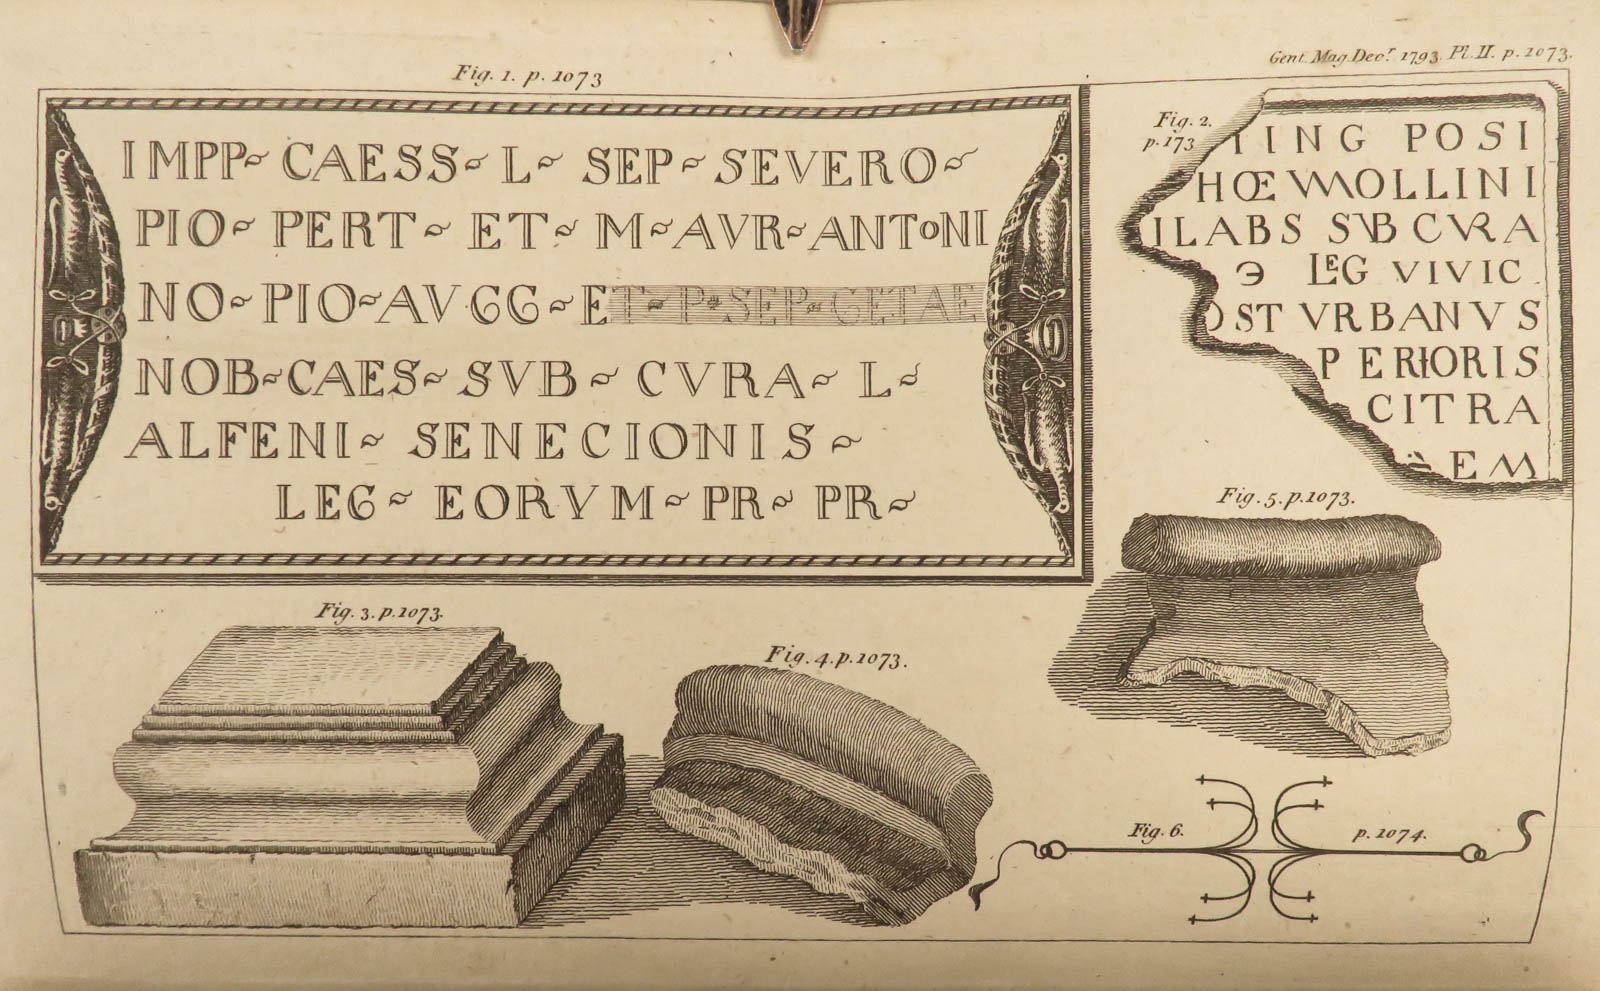 Gent. Mag. Decr. 1793. Pl. II. p. 1073.
Fig. 1. p. 1073
IMPP~ CAESS~ L~ SEP~ SEVERO~
PIO~ PERT~ ET~ M~AVR~ANTONI
NO~PIO~AVGG~ET~P~SEP~GETAE
NOB~CAES~ SVB~ CVRA~ L~
ALFENI~ SENECIONIS~
LEG~ EORVM~PR~ PR~
Fig. 2.
p. 173
ING POSI
HŒ MOLLINI
ILABS SVB CVRA
LEG VIVIC
OST VRBANVS
PERIORIS
CITRA
EM
Fig. 5. p. 1073.
Fig. 3. p. 1073.
Fig. 4. p. 1073.
Fig. 6. p. 1074.